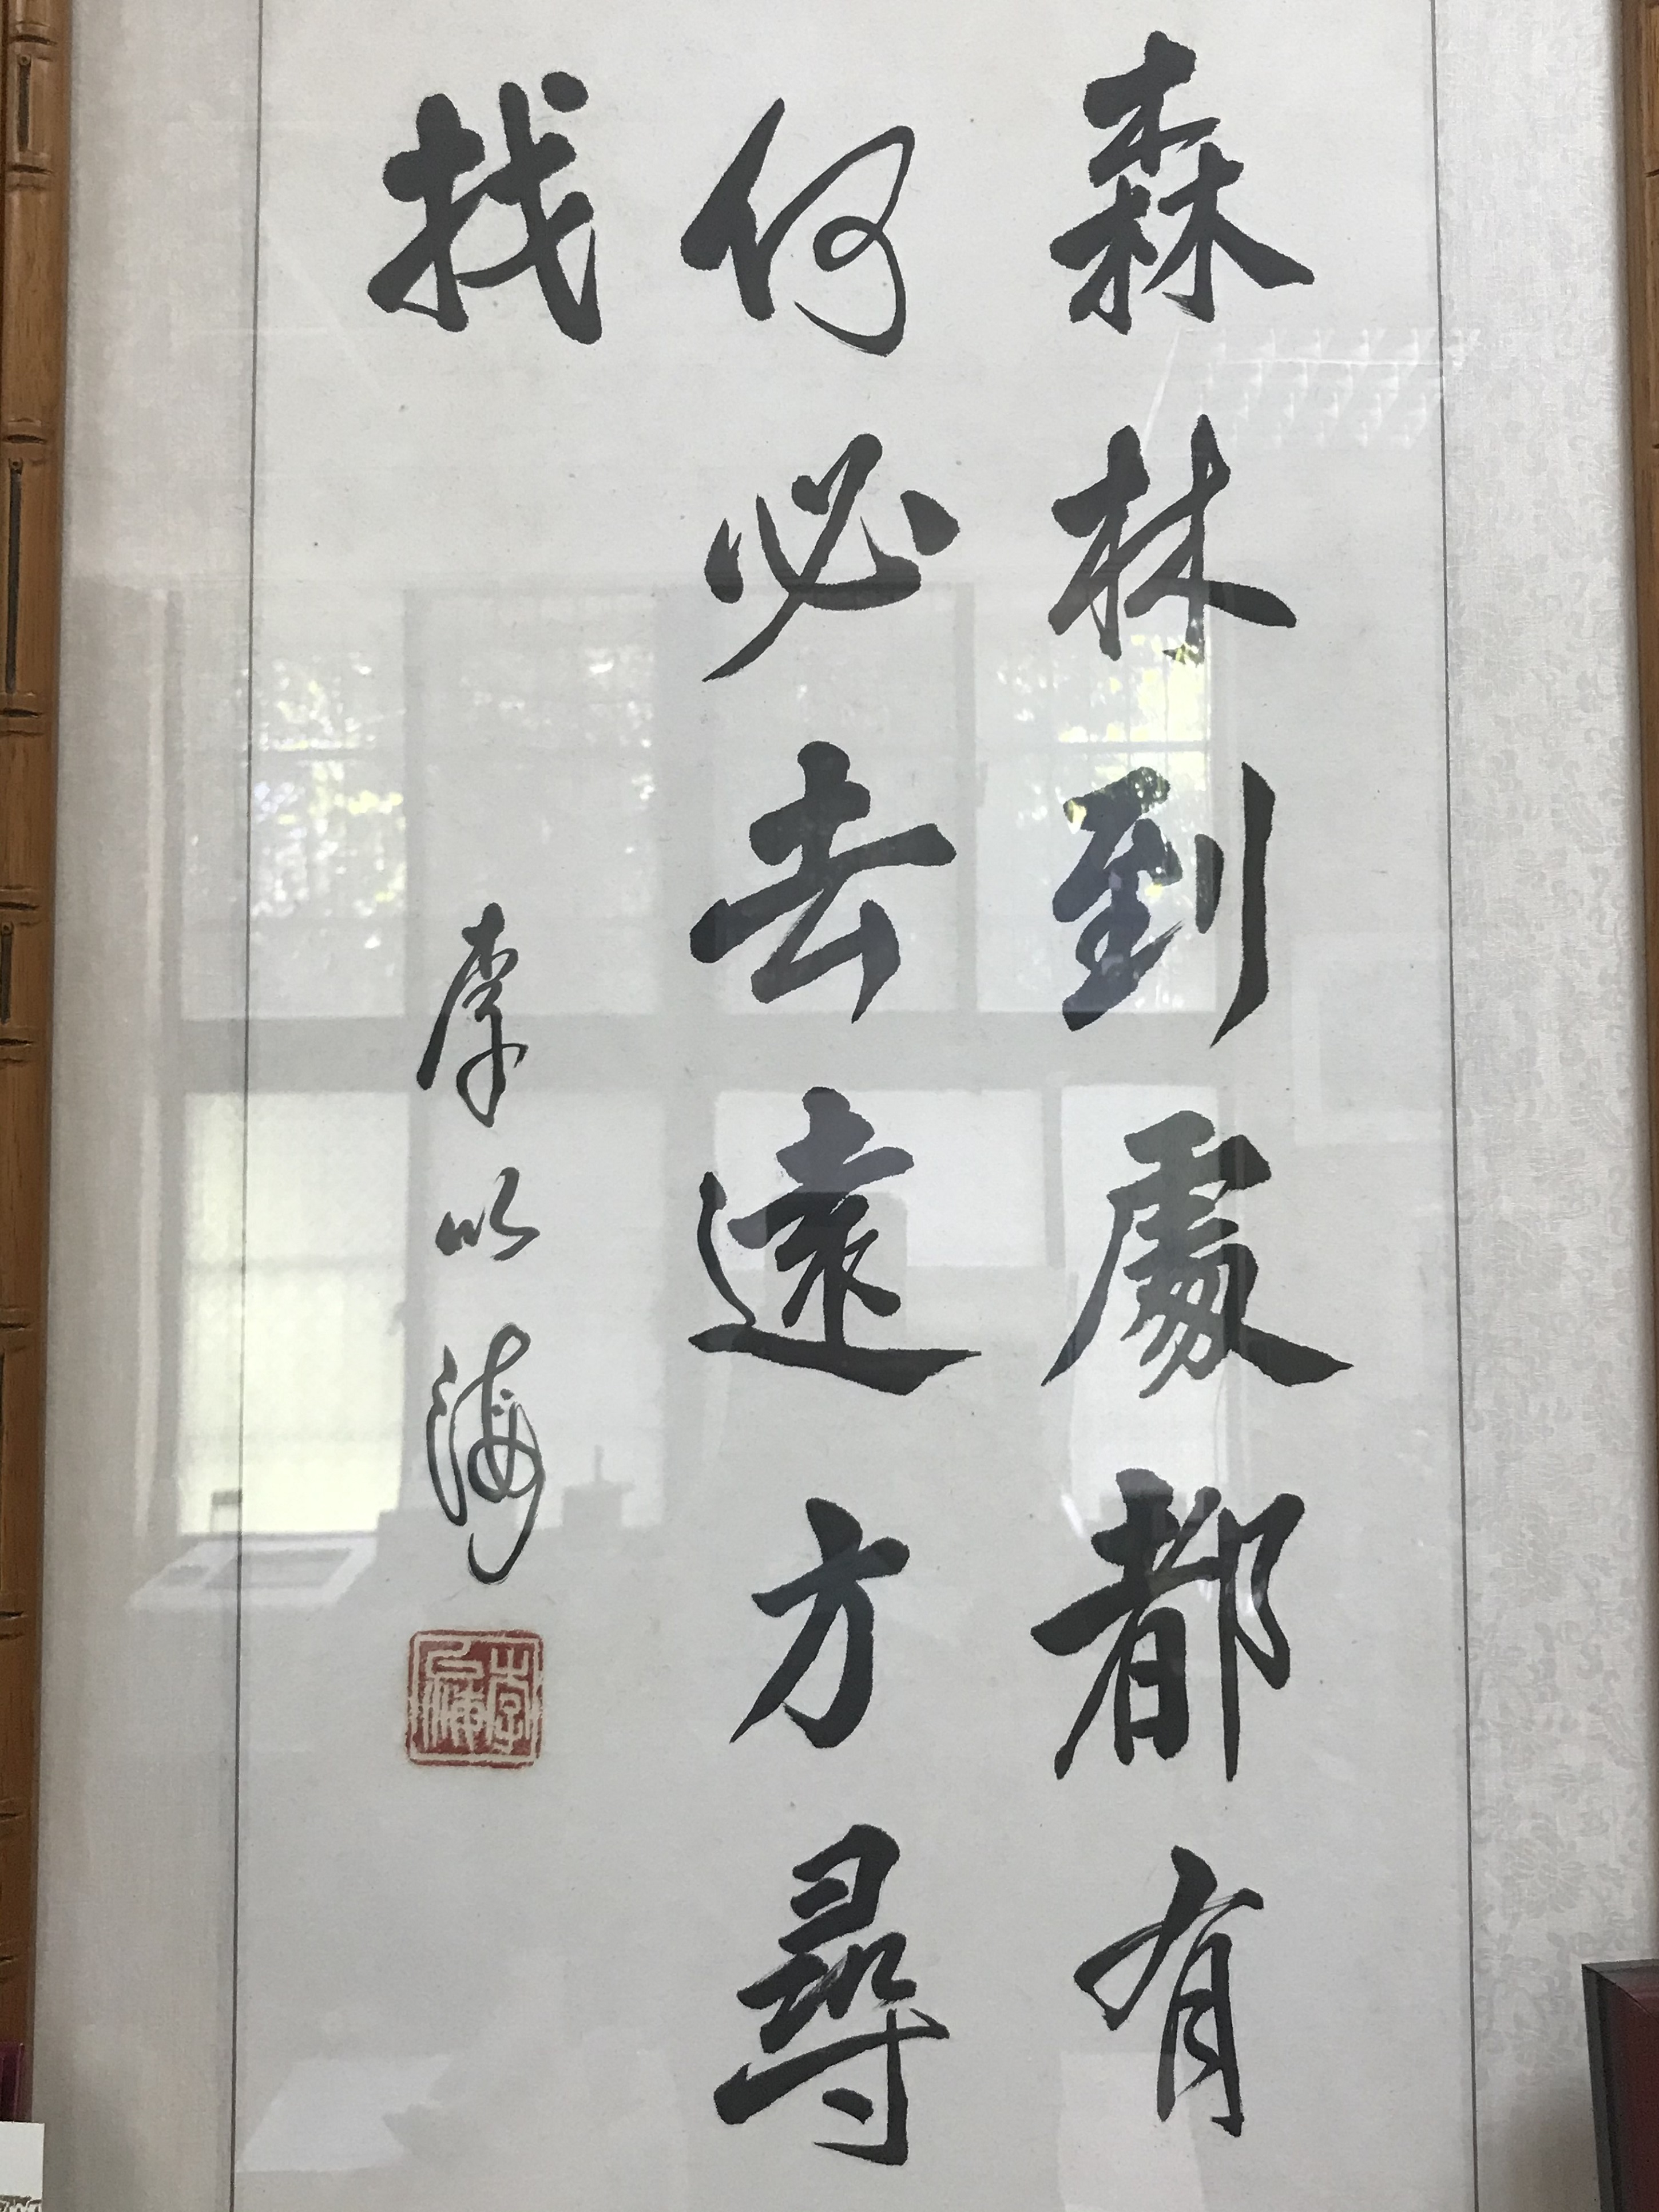 森林到處都有
何必去遠方尋
找
李以海